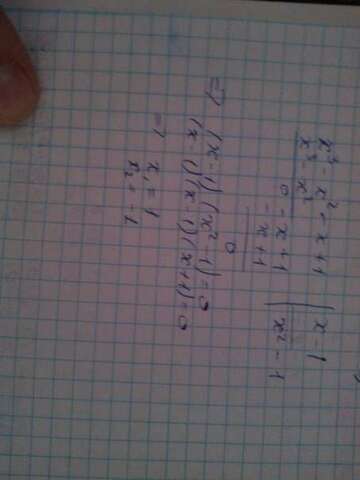 x³ - x² - x + 1 | x - 1
x³ - x² | x² - 1
0 - x + 1
- x + 1
0
=> (x - 1)(x² - 1) = 0
(x - 1)(x - 1)(x + 1) = 0
=> x₁ = 1
x₂ = -1